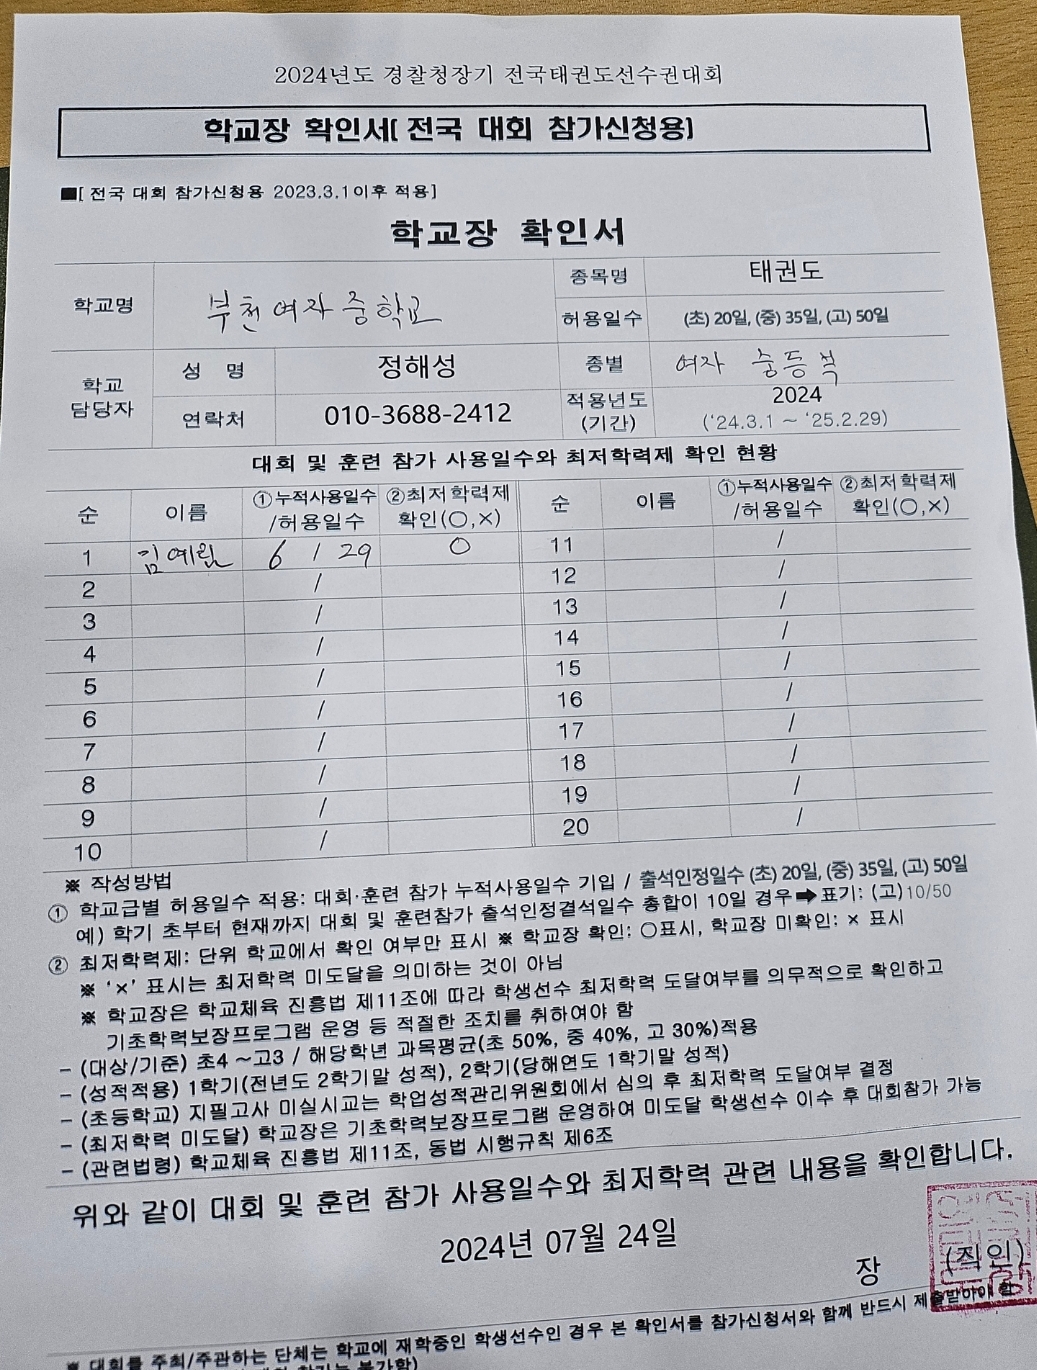 2024년도 경찰청장기 전국태권도선수권대회
학교장 확인서( 전국 대회 참가신청용)
■[ 전국 대회 참가신청용 2023.3.1이후 적용]
학교장 확인서
학교명 부천여자중학교 종목명 태권도
허용일수 (초) 20일, (중) 35일, (고) 50일
학교 담당자 성 명 정해성 종별 여자 중등부
연락처 010-3688-2412 적용년도 (기간) 2024 ('24.3.1 ~ '25.2.29)
대회 및 훈련 참가 사용일수와 최저학력제 확인 현황
순 이름 ①누적사용일수 /허용일수 ②최저학력제 확인(○,×) 순 이름 ①누적사용일수 /허용일수 ②최저학력제 확인(○,×)
1 김예림 6 / 29 ○ 11 /
2 / 12 /
3 / 13 /
4 / 14 /
5 / 15 /
6 / 16 /
7 / 17 /
8 / 18 /
9 / 19 /
10 / 20 /
※ 작성방법
① 학교급별 허용일수 적용: 대회·훈련 참가 누적사용일수 기입 / 출석인정일수 (초) 20일, (중) 35일, (고) 50일
예) 학기 초부터 현재까지 대회 및 훈련참가 출석인정결석일수 총합이 10일 경우➡표기: (고)10/50
② 최저학력제: 단위 학교에서 확인 여부만 표시 ※ 학교장 확인: ○표시, 학교장 미확인: × 표시
※ '×' 표시는 최저학력 미도달을 의미하는 것이 아님
※ 학교장은 학교체육 진흥법 제11조에 따라 학생선수 최저학력 도달여부를 의무적으로 확인하고
기초학력보장프로그램 운영 등 적절한 조치를 취하여야 함
– (대상/기준) 초4 ~고3 / 해당학년 과목평균(초 50%, 중 40%, 고 30%)적용
– (성적적용) 1학기(전년도 2학기말 성적), 2학기(당해연도 1학기말 성적)
– (초등학교) 지필고사 미실시교는 학업성적관리위원회에서 심의 후 최저학력 도달여부 결정
– (최저학력 미도달) 학교장은 기초학력보장프로그램 운영하여 미도달 학생선수 이수 후 대회참가 가능
– (관련법령) 학교체육 진흥법 제11조, 동법 시행규칙 제6조
위와 같이 대회 및 훈련 참가 사용일수와 최저학력 관련 내용을 확인합니다.
2024년 07월 24일
장 (직인)
※ 대회를 주최/주관하는 단체는 학교에 재학중인 학생선수인 경우 본 확인서를 참가신청서와 함께 반드시 제출받아야 함